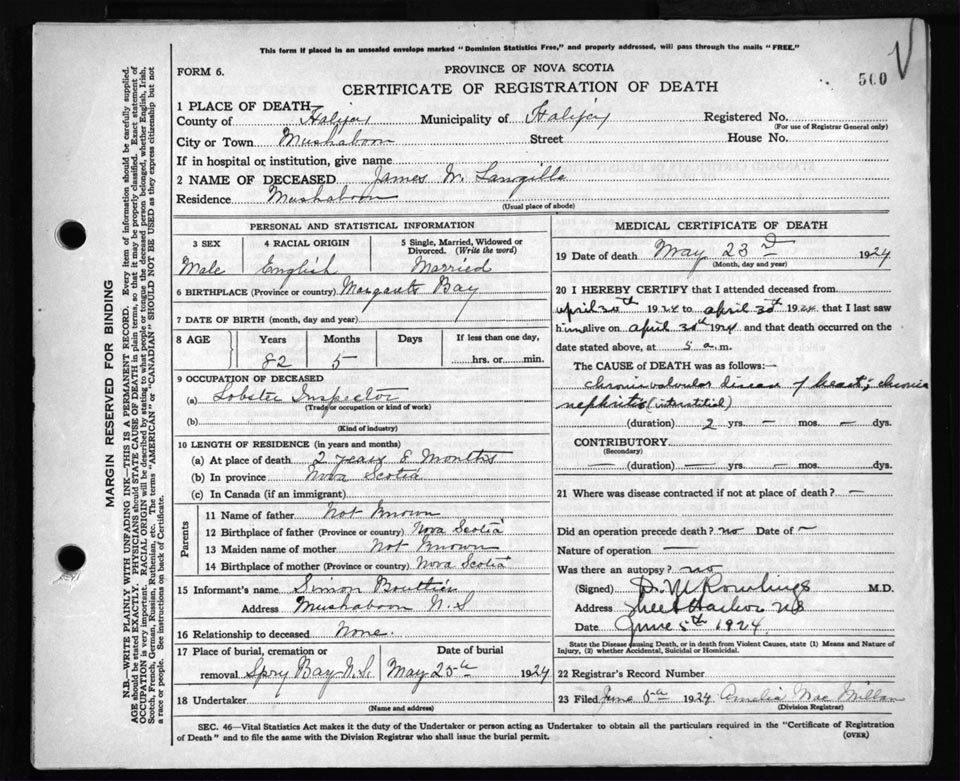 This form if placed in an unsealed envelope marked "Dominion Statistics Free," and properly addressed, will pass through the mails "FREE."
FORM 6.
PROVINCE OF NOVA SCOTIA
500
CERTIFICATE OF REGISTRATION OF DEATH
1 PLACE OF DEATH
County of Halifax Municipality of Halifax Registered No.
(For use of Registrar General only)
City or Town Mushaboon Street House No.
If in hospital or institution, give name
2 NAME OF DECEASED James W. Langille
Residence Mushaboon
(Usual place of abode)
PERSONAL AND STATISTICAL INFORMATION
3 SEX 4 RACIAL ORIGIN 5 Single, Married, Widowed or Divorced. (Write the word)
Male English Married
6 BIRTHPLACE (Province or country) Margarets Bay
7 DATE OF BIRTH (month, day and year)
8 AGE Years Months Days If less than one day,
82 5 hrs. or min.
9 OCCUPATION OF DECEASED
(a) Lobster Inspector
(Trade or occupation or kind of work)
(b)
(Kind of industry)
10 LENGTH OF RESIDENCE (in years and months)
(a) At place of death 2 years 8 Months
(b) In province Nova Scotia
(c) In Canada (if an immigrant)
Parents
11 Name of father Not Known
12 Birthplace of father (Province or country) Nova Scotia
13 Maiden name of mother Not Known
14 Birthplace of mother (Province or country) Nova Scotia
15 Informant's name Simon Boutlier
Address Mushaboon N.S
16 Relationship to deceased None.
17 Place of burial, cremation or removal Date of burial
Spry Bay N.S. May 25th 1924
18 Undertaker
(Name and address)
MEDICAL CERTIFICATE OF DEATH
19 Date of death May 23rd 1924
(Month, day and year)
20 I HEREBY CERTIFY that I attended deceased from
april 20th 1924 to april 30th 1924 that I last saw
him alive on april 30th 1924 and that death occurred on
date stated above, at 5 a.m.
The CAUSE of DEATH was as follows:—
chronic valvular disease of heart; chronic
nephritis (interstitial)
(duration) 2 yrs. — mos. — dys.
CONTRIBUTORY.
(Secondary)
— (duration) — yrs. — mos. dys.
21 Where was disease contracted if not at place of death? —
Did an operation precede death? no Date of —
Nature of operation —
Was there an autopsy? no
(Signed) D. M Rowlings M.D.
Address Sheet Harbor NS
Date June 5th 1924.
State the Disease causing Death, or in death from Violent Causes, state (1) Means and Nature of Injury, (2) whether Accidental, Suicidal or Homicidal.
22 Registrar's Record Number
23 Filed June 5th 1924 Amelia MacMillan
(Division Registrar)
SEC. 46—Vital Statistics Act makes it the duty of the Undertaker or person acting as Undertaker to obtain all the particulars required in the "Certificate of Registration
of Death" and to file the same with the Division Registrar who shall issue the burial permit.
(OVER)
MARGIN RESERVED FOR BINDING
N.B.—WRITE PLAINLY, WITH UNFADING INK—THIS IS A PERMANENT RECORD. Every item of information should be carefully supplied.
AGE should be stated EXACTLY. PHYSICIANS should STATE CAUSE OF DEATH in plain terms, so that it may be properly classified. Exact statement of
OCCUPATION is very important. RACIAL ORIGIN will be described by stating to what people or tongue the deceased person belonged, whether English, Irish,
Scotch, French, German, Russian, Ruthenian, etc. The terms "AMERICAN" or "CANADIAN" SHOULD NOT BE USED as they express citizenship but not
a race or people. See instructions on back of Certificate.